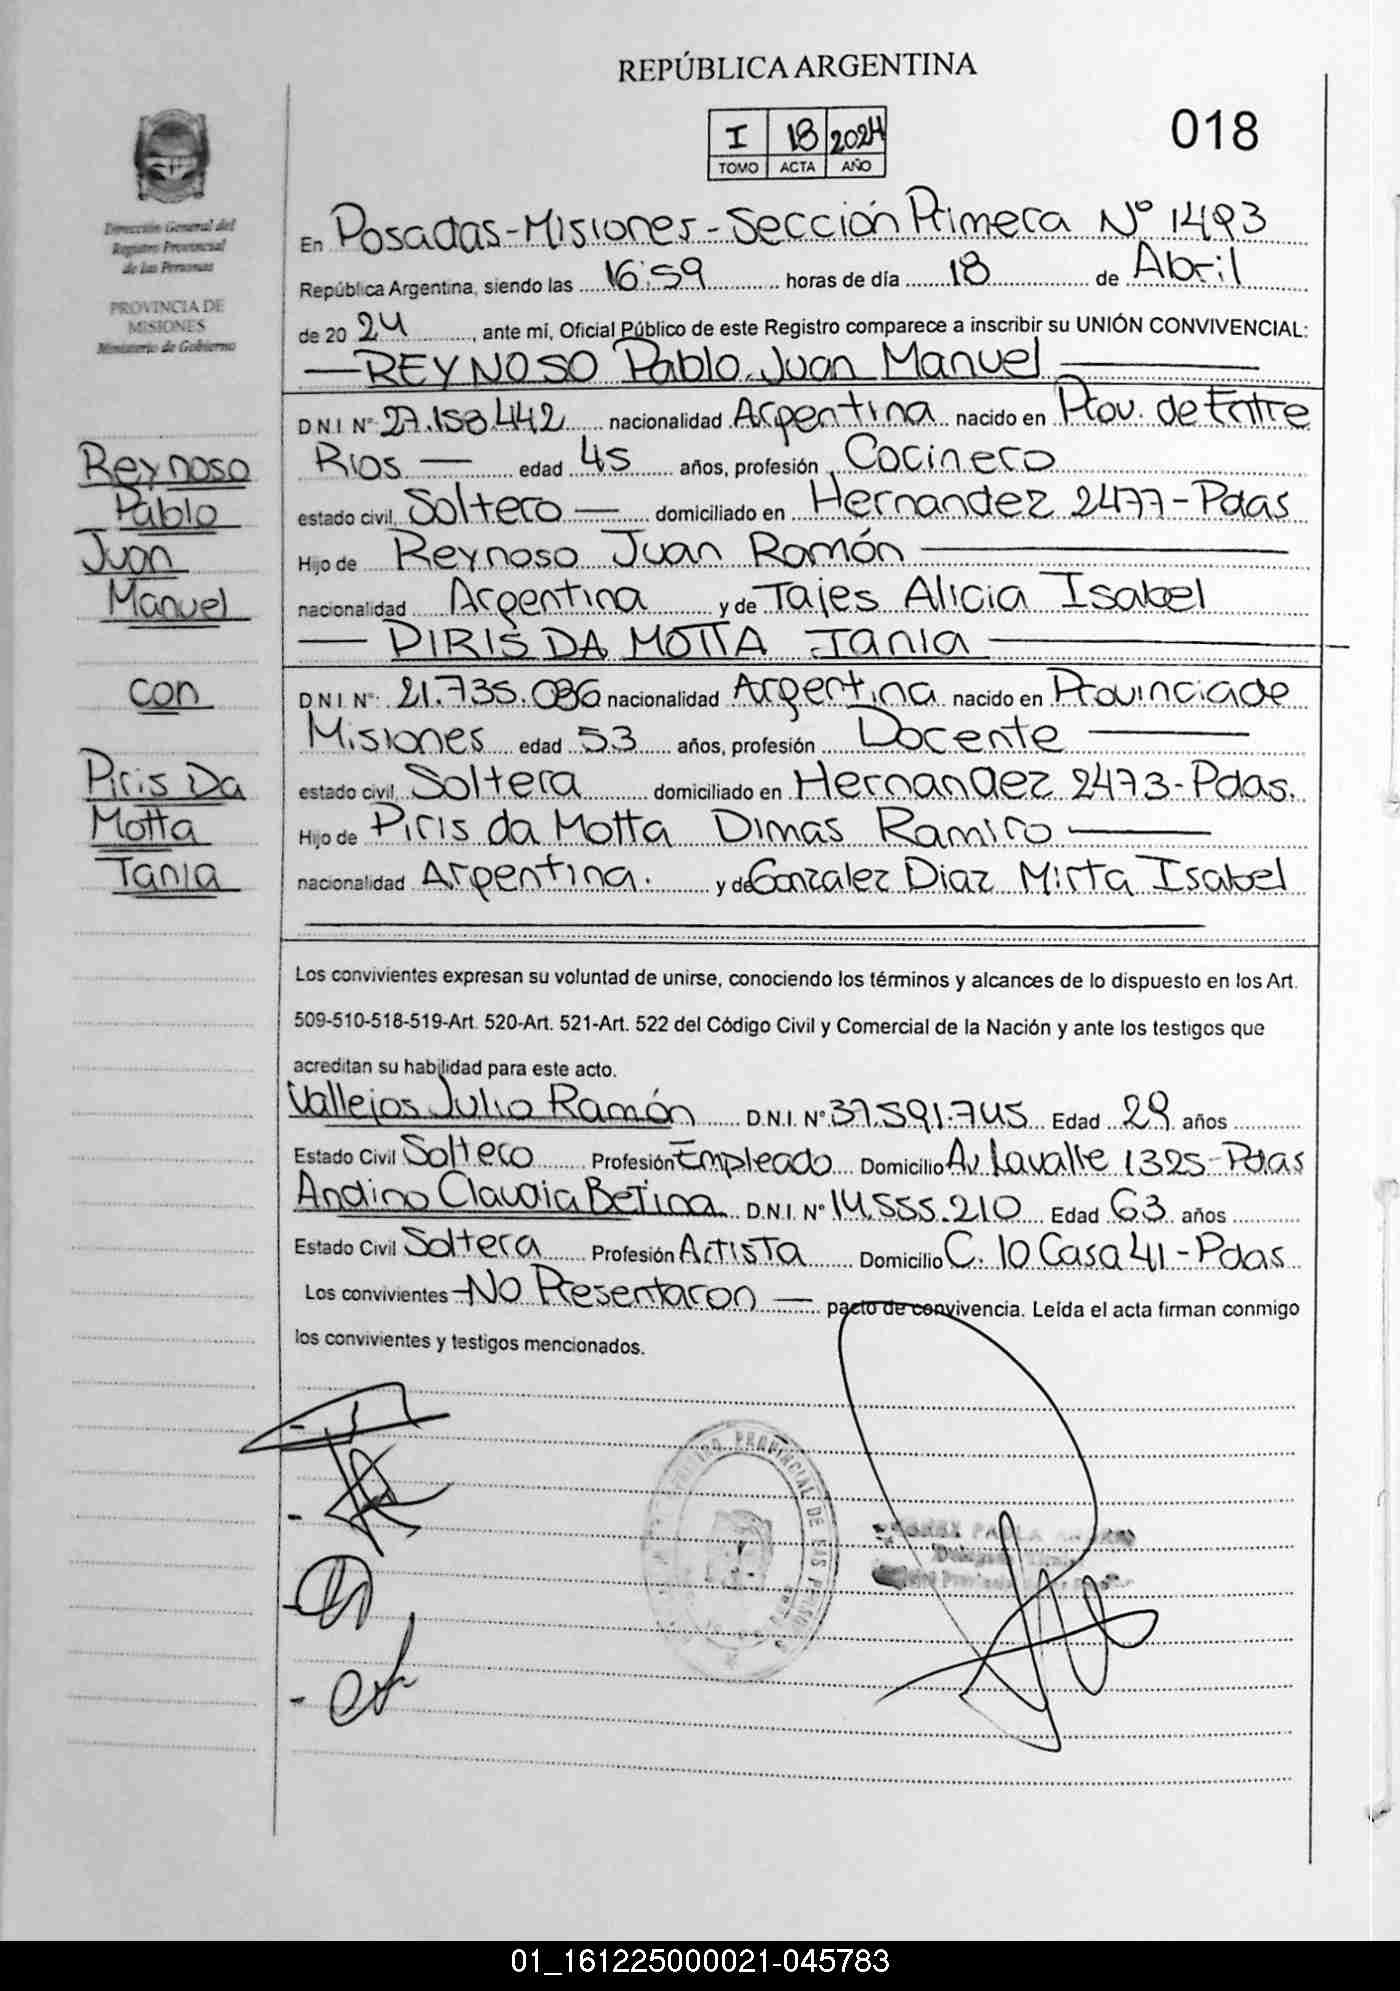 REPÚBLICA ARGENTINA
I 18 2024
TOMO ACTA AÑO
018
Dirección General del
Registro Provincial
de las Personas
PROVINCIA DE
MISIONES
Ministerio de Gobierno
En Posadas-Misiones-Sección Primera Nº 1493
República Argentina, siendo las 16:59 horas de día 18 de Abril
de 20 24, ante mí, Oficial Público de este Registro comparece a inscribir su UNIÓN CONVIVENCIAL:
— REYNOSO Pablo Juan Manuel —
D N.I. Nº 27.158.442 nacionalidad Argentina nacido en Prov. de Entre
Rios — edad 45 años, profesión Cocinero
estado civil Soltero — domiciliado en Hernandez 2477-Pdas
Hijo de Reynoso Juan Ramón —
nacionalidad Argentina y de Tajes Alicia Isabel
— PIRIS DA MOTTA Tania —
D N.I. Nº 21.735.086 nacionalidad Argentina nacido en Provincia de
Misiones edad 53 años, profesión Docente —
estado civil Soltera domiciliado en Hernandez 2473-Pdas.
Hijo de Piris da Motta Dimas Ramiro —
nacionalidad Argentina. y de Gonzalez Diaz Mirta Isabel
Reynoso
Pablo
Juan
Manuel
con
Piris Da
Motta
Tania
Los convivientes expresan su voluntad de unirse, conociendo los términos y alcances de lo dispuesto en los Art.
509-510-518-519-Art. 520-Art. 521-Art. 522 del Código Civil y Comercial de la Nación y ante los testigos que
acreditan su habilidad para este acto.
Vallejos Julio Ramón D.N.I. Nº 37.591.745 Edad 29 años
Estado Civil Soltero Profesión Empleado Domicilio Av Lavalle 1325-Pdas
Andino Claudia Betina D.N.I. Nº 14.555.210 Edad 63 años
Estado Civil Soltera Profesión Artista Domicilio C. 10 Casa 41-Pdas
Los convivientes -No Presentaron — pacto de convivencia. Leída el acta firman conmigo
los convivientes y testigos mencionados.
PROVINCIAL DE LAS
01_161225000021-045783